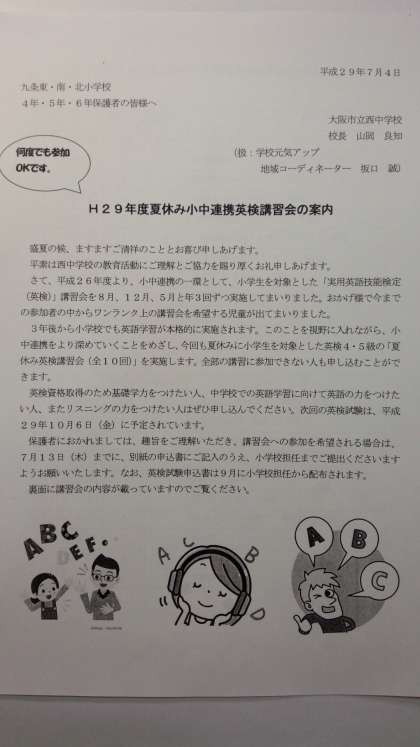 平成２９年７月４日
九条東・南・北小学校
４年・５年・６年保護者の皆様へ
大阪市立西中学校
校長　山岡　良知
（扱：学校元気アップ
地域コーディネーター　坂口　誠）
何度でも参加
OKです。
Ｈ２９年度夏休み小中連携英検講習会の案内
盛夏の候、ますますご清祥のこととお喜び申しあげます。
平素は西中学校の教育活動にご理解とご協力を賜り厚くお礼申しあげます。
さて、平成２６年度より、小中連携の一環として、小学生を対象とした「実用英語技能検定
（英検）」講習会を８月、１２月、５月と年３回ずつ実施してまいりました。おかげ様で今まで
の参加者の中からワンランク上の講習会を希望する児童が出てまいりました。
３年後から小学校でも英語学習が本格的に実施されます。このことを視野に入れながら、小
中連携をより深めていくことをめざし、今回も夏休みに小学生を対象とした英検４・５級の「夏
休み英検講習会（全１０回）」を実施します。全部の講習に参加できない人も申し込むことがで
きます。
英検資格取得のため基礎学力をつけたい人、中学校での英語学習に向けて英語の力をつけた
い人、またリスニングの力をつけたい人はぜひ申し込んでください。次回の英検試験は、平成
２９年１０月６日（金）に予定されています。
保護者におかれましては、趣旨をご理解いただき、講習会への参加を希望される場合は、
７月１３日（木）までに、別紙の申込書にご記入のうえ、小学校担任までご提出くださいます
ようお願いいたします。なお、英検試験申込書は９月に小学校担任から配布されます。
裏面に講習会の内容が載っていますのでご覧ください。
ABC
DEF
A C B D
A B C